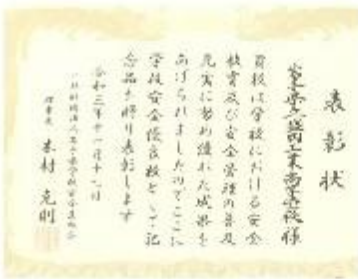 表彰状
盛岡工業高等学校 様
貴校は学校における安全
教育及び安全管理の普及
充実に努め優れた成果を
あげられましたのでここに
学校安全優良校として記
念品を贈り表彰します
令和三年十一月十七日
理事長 木村 克則